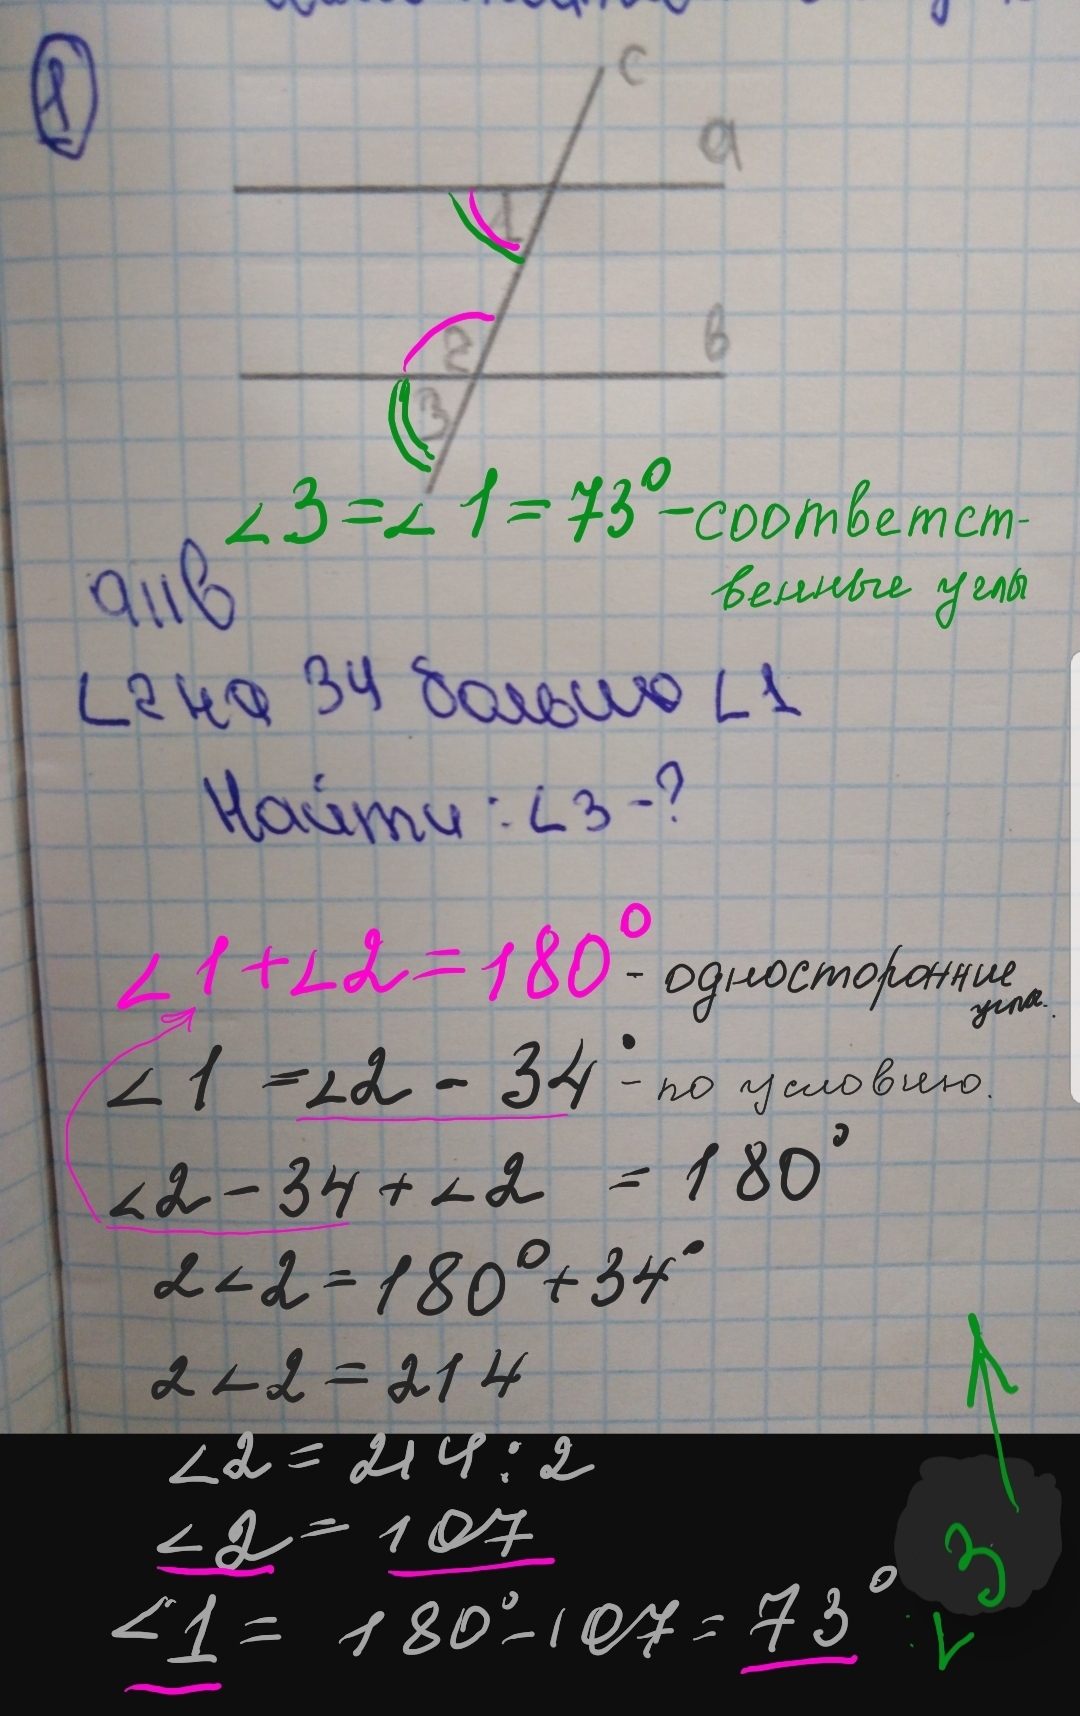 1
c
a
1
2
в
3
∠3=∠1=73° - соответст-
венные углы
a||b
∠2 на 34 больше ∠1
Найти: ∠3 - ?
∠1+∠2=180° - односторонние
углы.
∠1 =∠2 - 34° - по условию.
∠2 - 34 + ∠2 = 180°
2∠2 = 180° + 34°
2∠2 = 214
∠2 = 214 : 2
∠2 = 107
∠1 = 180° - 107 = 73°
∠3